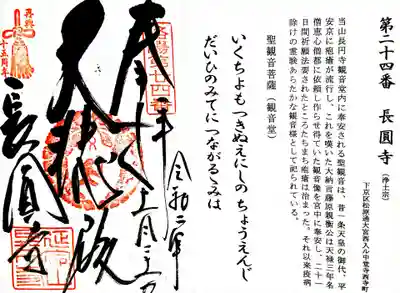 第二十四番 長圓寺 (浄土宗)
下京区松原通大宮西入ル中堂寺西寺町
当山長円寺観音堂内に奉安される聖観音は、昔一条天皇の御代、平
安京に疱瘡が流行し、これを嘆いた大納言藤原親衡公は天禄三年名
僧恵心僧都に依頼しみ彫らせ得ていた観音像を宮中に奉安し、二十一
日間祈願法要されたところたちまち疱瘡は治まった。それ以来疫病
除けの霊験あらたかな観音様として祀られている。
聖観音菩薩 (観音堂)
いくちよも つきぬえにしの ちょうえんじ
だいひのみてに つながるこみは
令和二年
奉拝
洛陽第廿四番
大悲殿
長圓寺
再興
十五周年